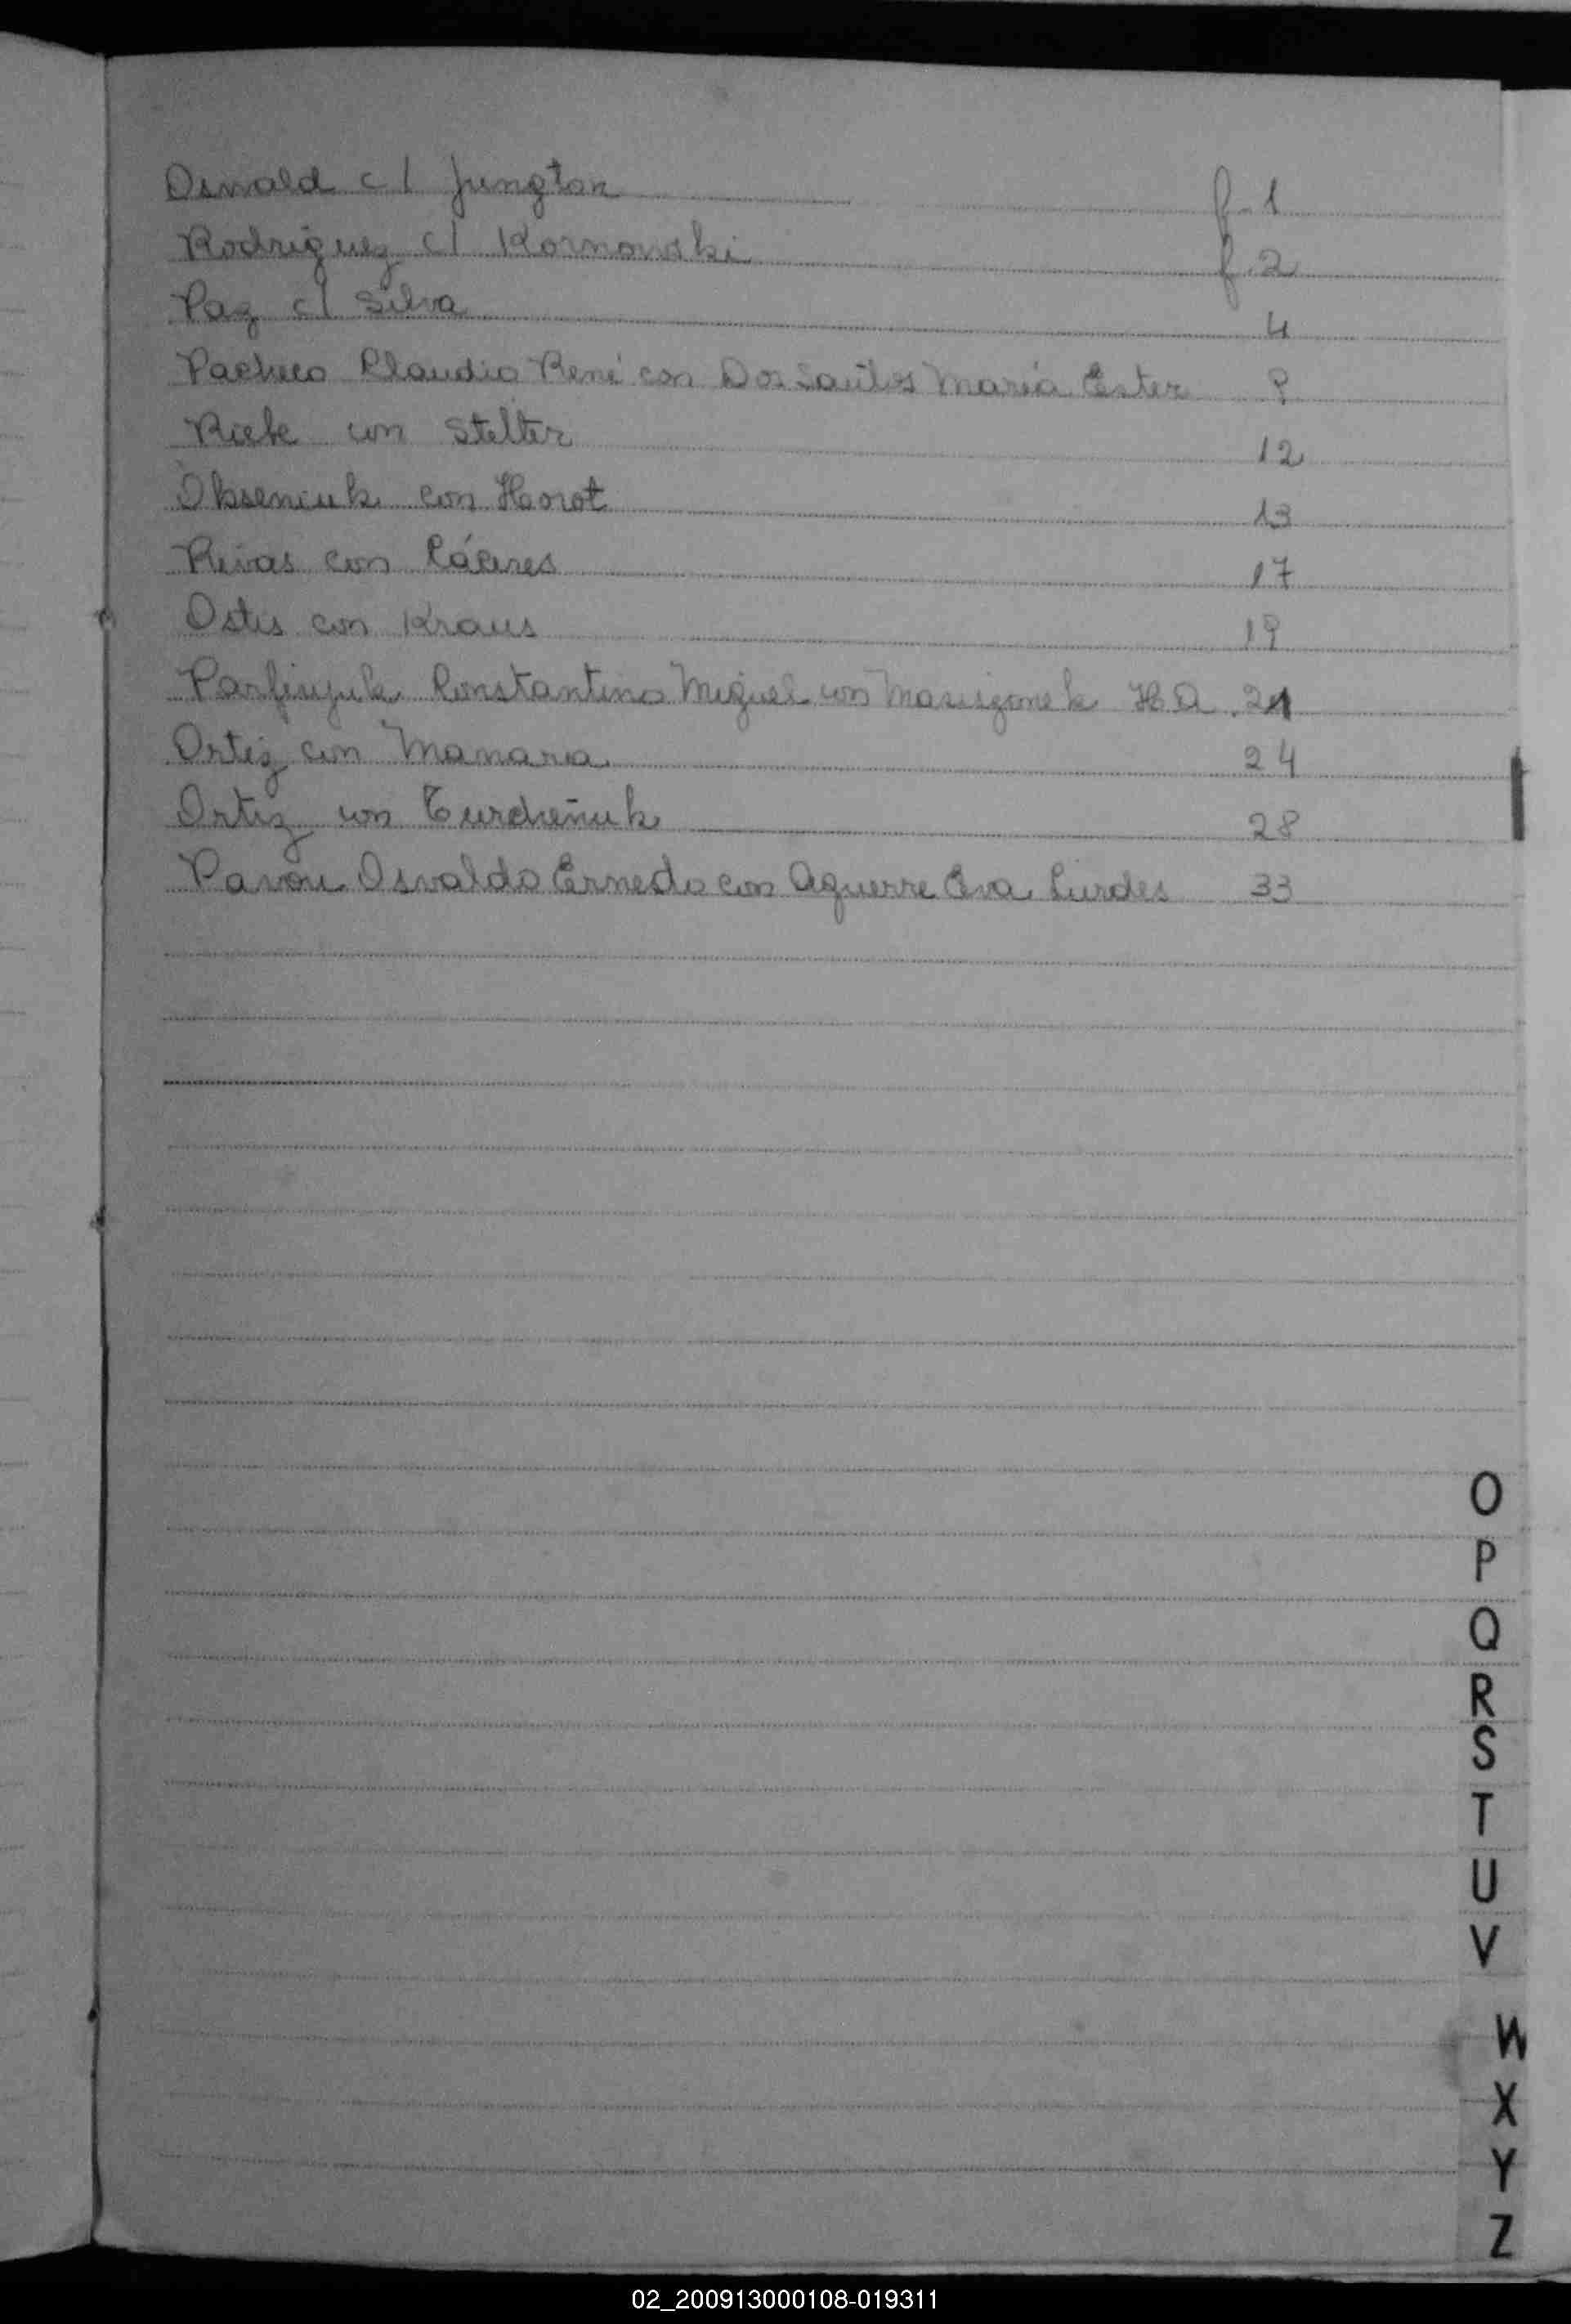 Oswald c/ Jungton f. 1
Rodriguez c/ Kornowski f. 2
Paz c/ Silva 4
Pacheco Claudio René con Dos Santos María Ester 9
Rieke con Stelter 12
Okseniuk con Horot 13
Rivas con Cáceres 17
Ostis con Kraus 19
Parfinyuk Constantino Miguel con H A. 21
Ortiz con Manara 24
Ortiz con Turcheniuk 28
Pavon Osvaldo Ernesto con Aguerre Eva Lurdes 33
O
P
Q
R
S
T
U
V
W
X
Y
Z
02_200913000108-019311